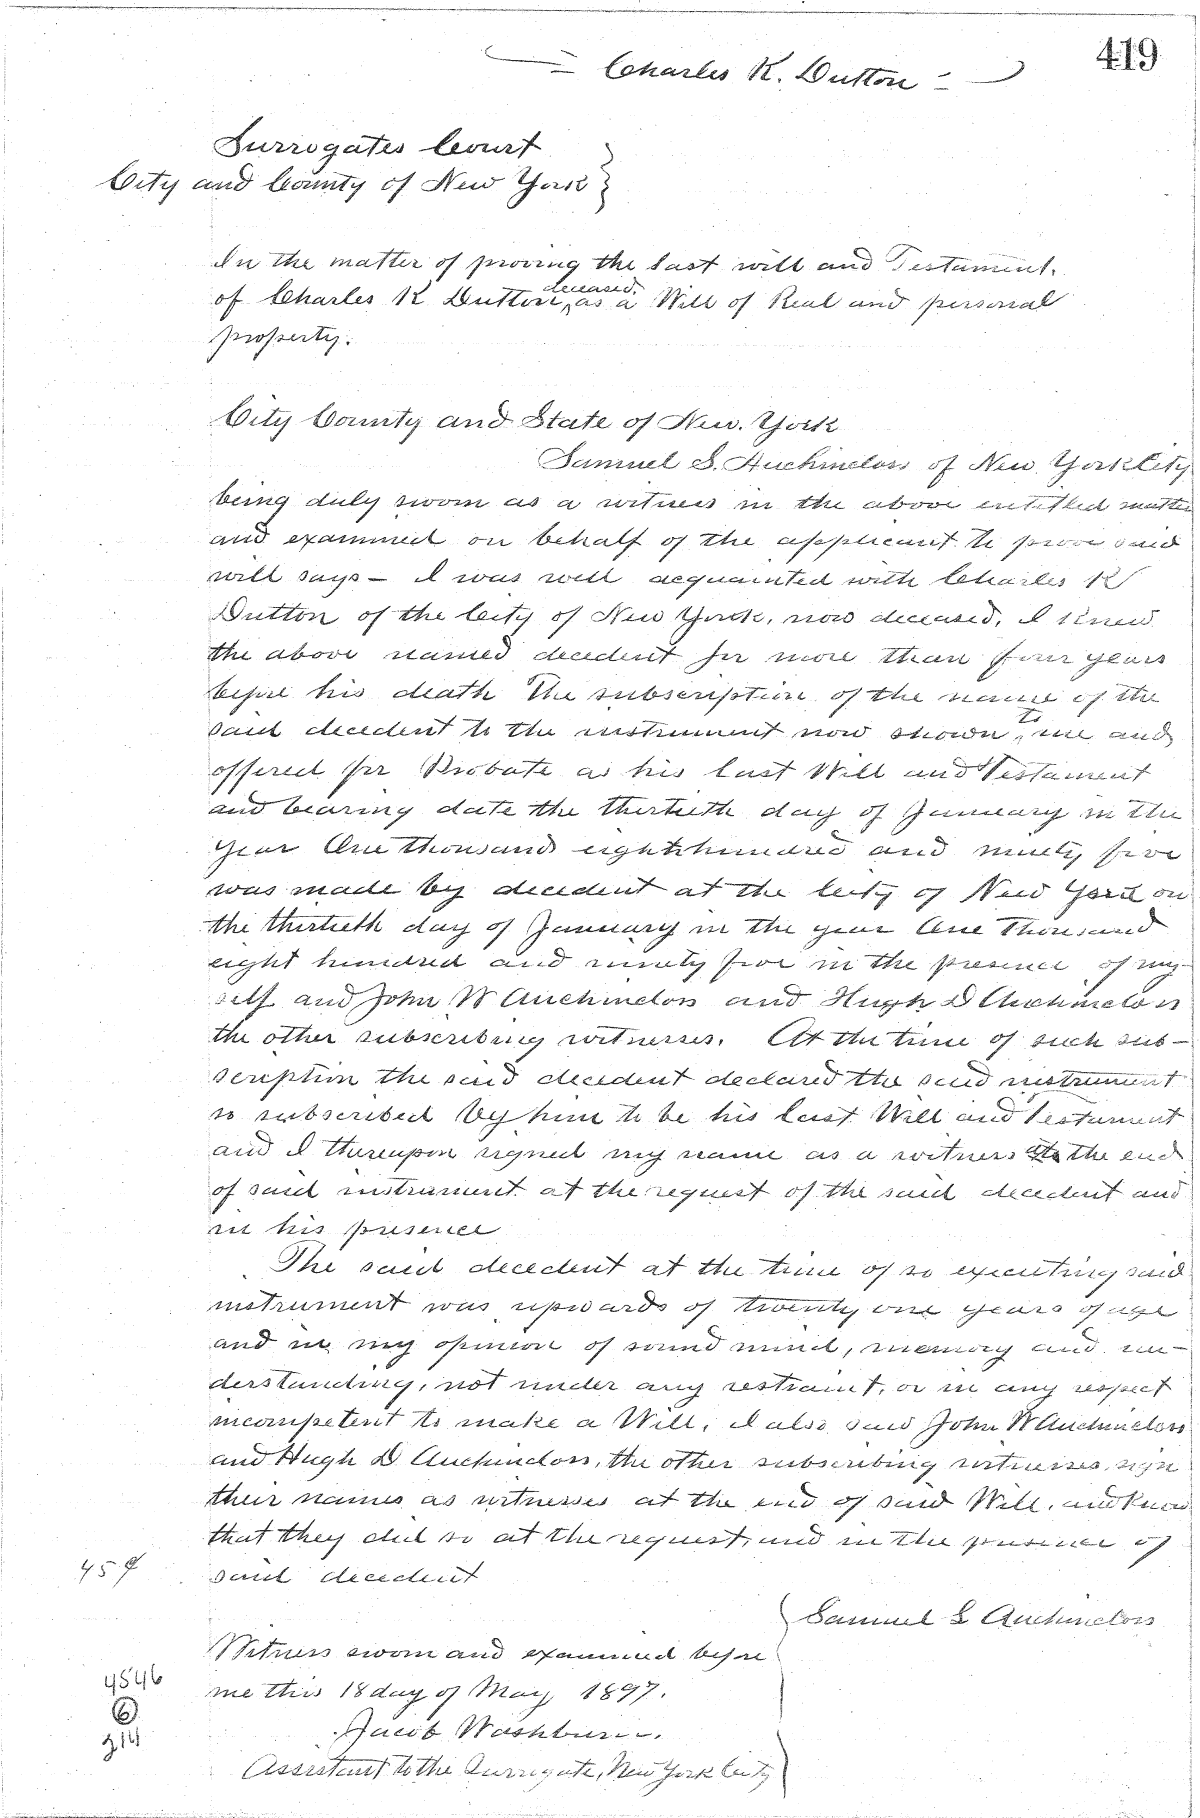 419
Charles K. Dutton
Surrogates Court
City and County of New York
In the matter of proving the last will and Testament.
deceased.
of Charles K Dutton, as a Will of Real and personal
property.
City County and State of New. York
Samuel S. Auchincloss of New York City
being duly sworn as a witness in the above entitled matter
and examined on behalf of the applicant to prove said
will says - I was well acquainted with Charles K
Dutton of the City of New York, now deceased, I knew
the above named decedent for more than four years
before his death The subscription of the name of the
to
said decedent to the instrument now shown me and
offered for Probate as his last Will and Testament
and bearing date the thirtieth day of January in the
year One thousand eight hundred and ninety five
was made by decedent at the City of New York on
the thirtieth day of January in the year One Thousand
eight hundred and ninety five in the presence of my-
self and John W Auchincloss and Hugh D Auchincloss
the other subscribing witnesses. At the time of such sub-
scription the said decedent declared the said instrument
so subscribed by him to be his last Will and Testament
and I thereupon signed my name as a witness the end
of said instrument at the request of the said decedent and
in his presence
The said decedent at the time of so executing said
instrument was upwards of twenty one years of age
and in my opinion of sound mind, memory and un-
derstanding, not under any restraint, or in any respect
incompetent to make a Will, I also saw John W Auchincloss
and Hugh D Auchincloss, the other subscribing witnesses, sign
their names as witnesses at the end of said Will, and know
that they did so at the request, and in the presence of
said decedent
Samuel S Auchincloss
Witness sworn and examined before
me this 18 day of May 1897.
Jacob Washburn.
Assistant to the Surrogate, New York County
4546
6